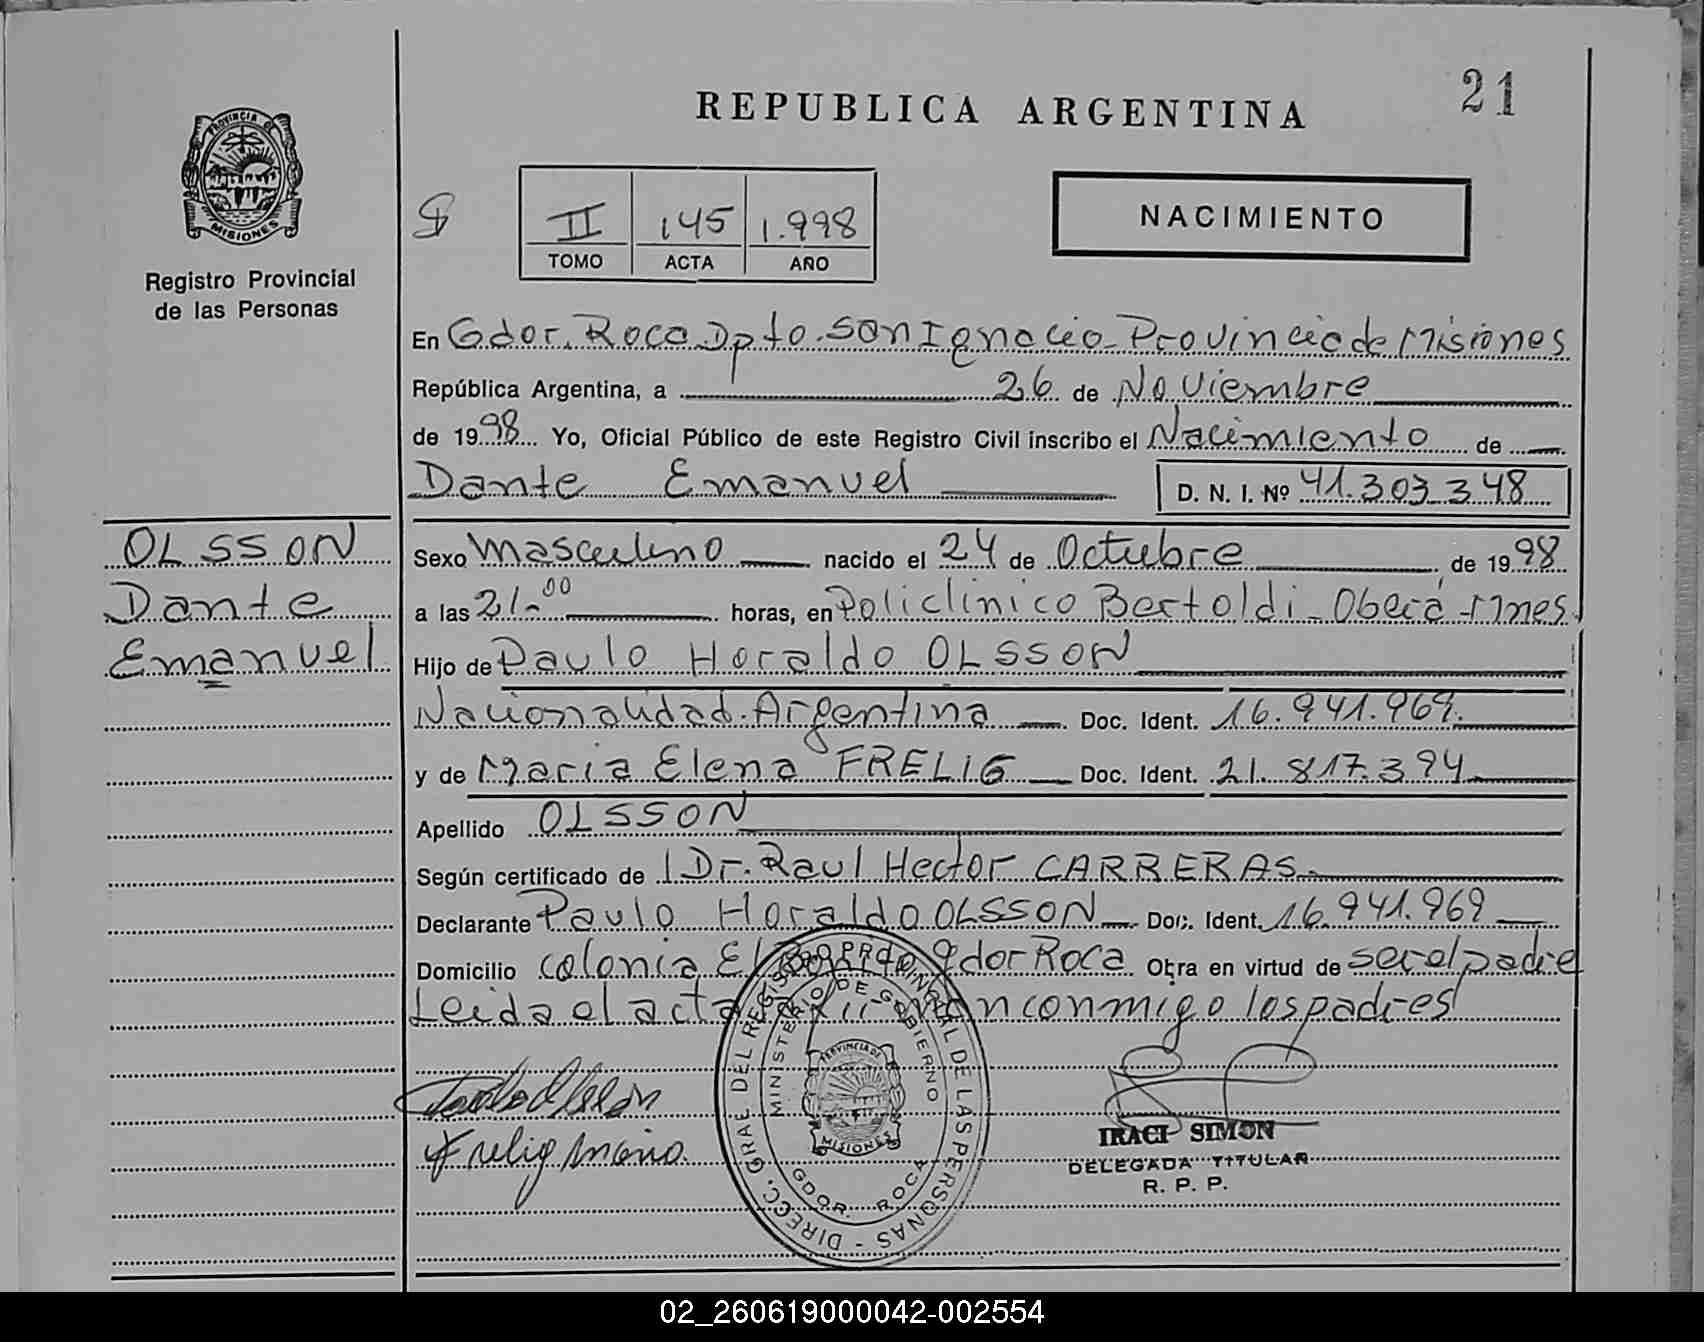 21
REPUBLICA ARGENTINA
PROVINCIA DE
MISIONES
Registro Provincial
de las Personas
II 145 1.998
TOMO ACTA AÑO
NACIMIENTO
En Gdor. Roca Dpto. San Ignacio - Provincia de Misiones
República Argentina, a 26 de Noviembre
de 1998 Yo, Oficial Público de este Registro Civil inscribo el Nacimiento de
Dante Emanuel D. N. I. Nº 41.303.348
OLSSON
Dante
Emanuel
Sexo Masculino nacido el 24 de Octubre de 1998
a las 21.00 horas, en Policlínico Bertoldi - Oberá - Mnes
Hijo de Paulo Horaldo OLSSON
Nacionalidad. Argentina Doc. Ident. 16.941.969.
y de Maria Elena FRELIG Doc. Ident. 21.817.394
Apellido OLSSON
Según certificado de Dr. Raul Hector CARRERAS
Declarante Paulo Horaldo OLSSON Doc. Ident. 16.941.969
Domicilio colonia El Gdor Roca Obra en virtud de ser el padre
Leida el acta conmigo los padres
Frelig Maria
DIRECC. GRAL DEL REGISTRO PROVINCIAL DE LAS PERSONAS -
MINISTERIO DE GOBIERNO
PROVINCIA DE
MISIONES
GDOR. ROCA
IRACI SIMON
DELEGADA TITULAR
R. P. P.
02_260619000042-002554